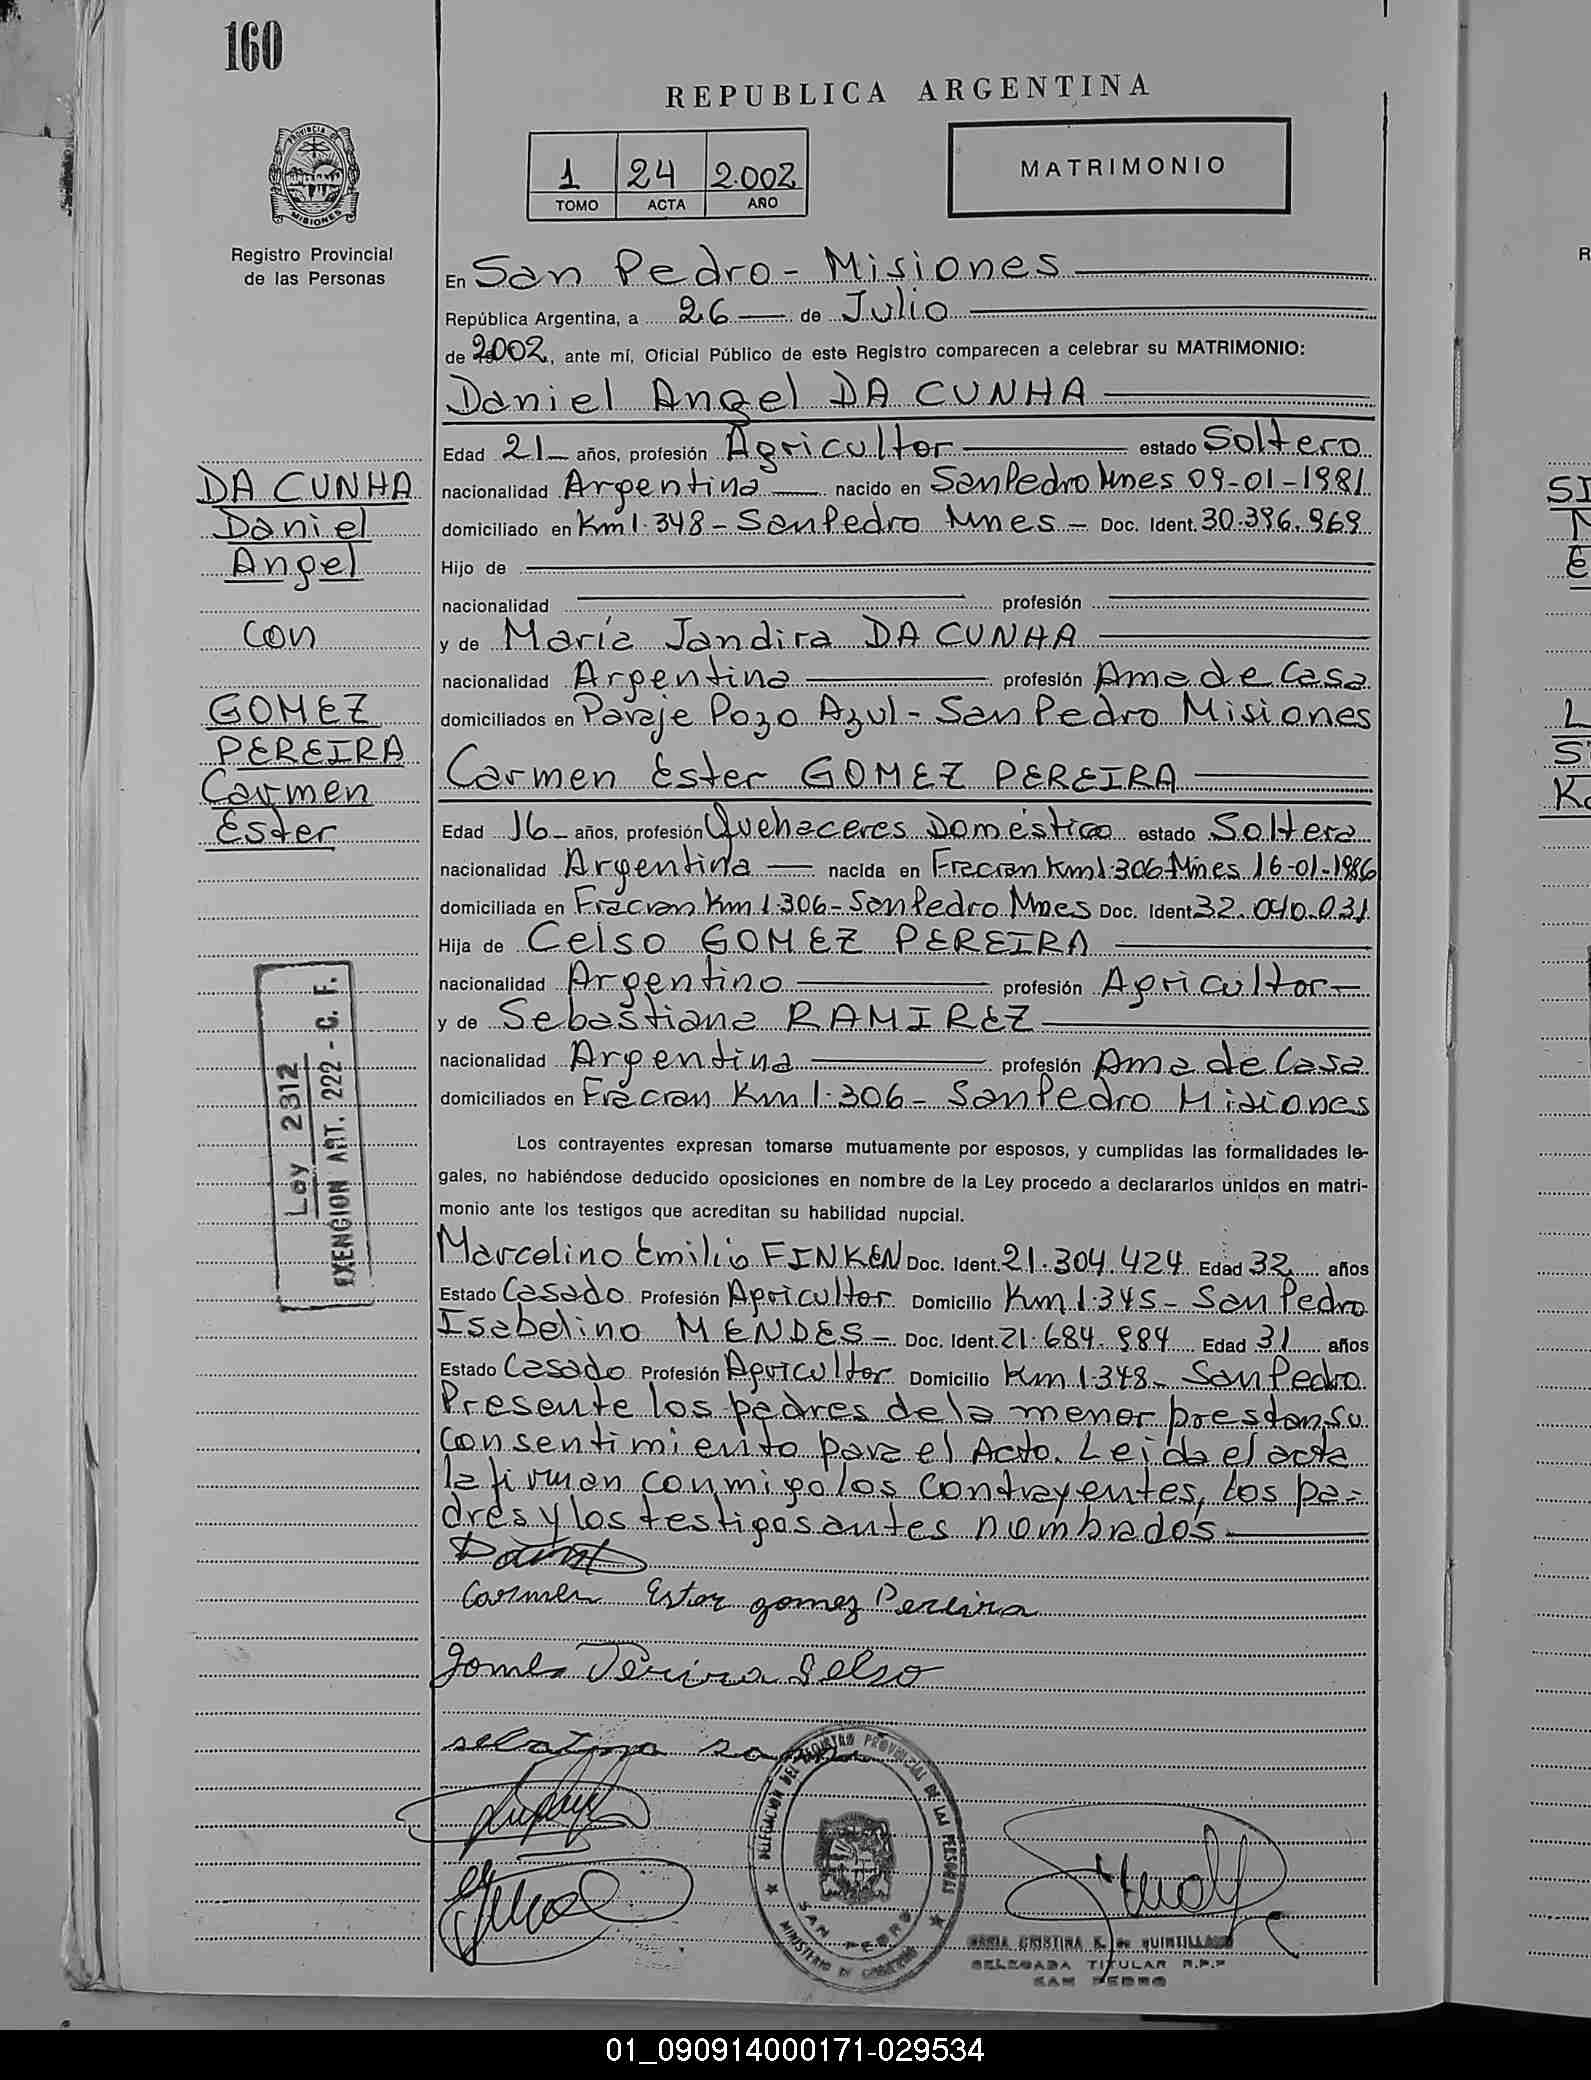 160
REPUBLICA ARGENTINA
1 24 2.002
TOMO ACTA AÑO
MATRIMONIO
PROVINCIA DE MISIONES
Registro Provincial
de las Personas
En San Pedro - Misiones
República Argentina, a 26 de Julio
de 2002, ante mí, Oficial Público de este Registro comparecen a celebrar su MATRIMONIO:
Daniel Angel DA CUNHA
Edad 21 años, profesión Agricultor estado Soltero
nacionalidad Argentina nacido en San Pedro Mnes 09-01-1981
domiciliado en Km 1.348 - San Pedro Mnes - Doc. Ident. 30.396.969
Hijo de
nacionalidad profesión
y de María Jandira DA CUNHA
nacionalidad Argentina profesión Ama de Casa
domiciliados en Paraje Pozo Azul - San Pedro Misiones
Carmen Ester GOMEZ PEREIRA
Edad 16 años, profesión Quehaceres Doméstico estado Soltera
nacionalidad Argentina nacida en Fracran Km 1.306 Mnes 16-01-1986
domiciliada en Fracran Km 1.306 - San Pedro Mnes Doc. Ident 32.040.031
Hija de Celso GOMEZ PEREIRA
nacionalidad Argentino profesión Agricultor
y de Sebastiana RAMIREZ
nacionalidad Argentina profesión Ama de Casa
domiciliados en Fracran Km 1.306 - San Pedro Misiones
Los contrayentes expresan tomarse mutuamente por esposos, y cumplidas las formalidades le-
gales, no habiéndose deducido oposiciones en nombre de la Ley procedo a declararlos unidos en matri-
monio ante los testigos que acreditan su habilidad nupcial.
Marcelino Emilio FINKEN Doc. Ident. 21.304.424 Edad 32 años
Estado Casado Profesión Agricultor Domicilio Km 1.345 - San Pedro
Isabelino MENDES - Doc. Ident. 21.684.984 Edad 31 años
Estado Casado Profesión Agricultor Domicilio Km 1.348 - San Pedro
Presente los padres de la menor prestan su
consentimiento para el Acto. Leida el acta
la firman conmigo los contrayentes, los pa-
dres y los testigos antes nombrados
DA CUNHA
Daniel
Angel
con
GOMEZ
PEREIRA
Carmen
Ester
Ley 2312
EXENCION ART. 222 - C. F.
Carmen Ester gomez Pereira
gomes Pereira Selso
DELEGACION DEL REGISTRO PROVINCIAL DE LAS PERSONAS
SAN PEDRO
MINISTERIO DE GOBIERNO
MARIA CRISTINA K. de QUINTILLANO
DELEGADA TITULAR R.P.P
SAN PEDRO
01_090914000171-029534